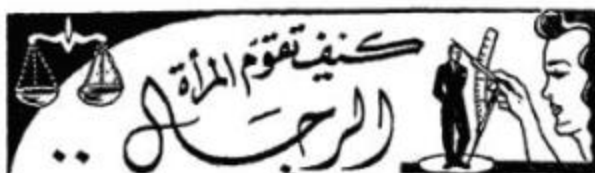 كيف تقوّم المرأة
الرجال ..